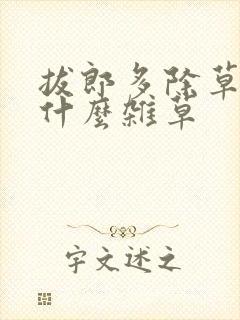 拔郎多除草
什麼雑草
字文述之